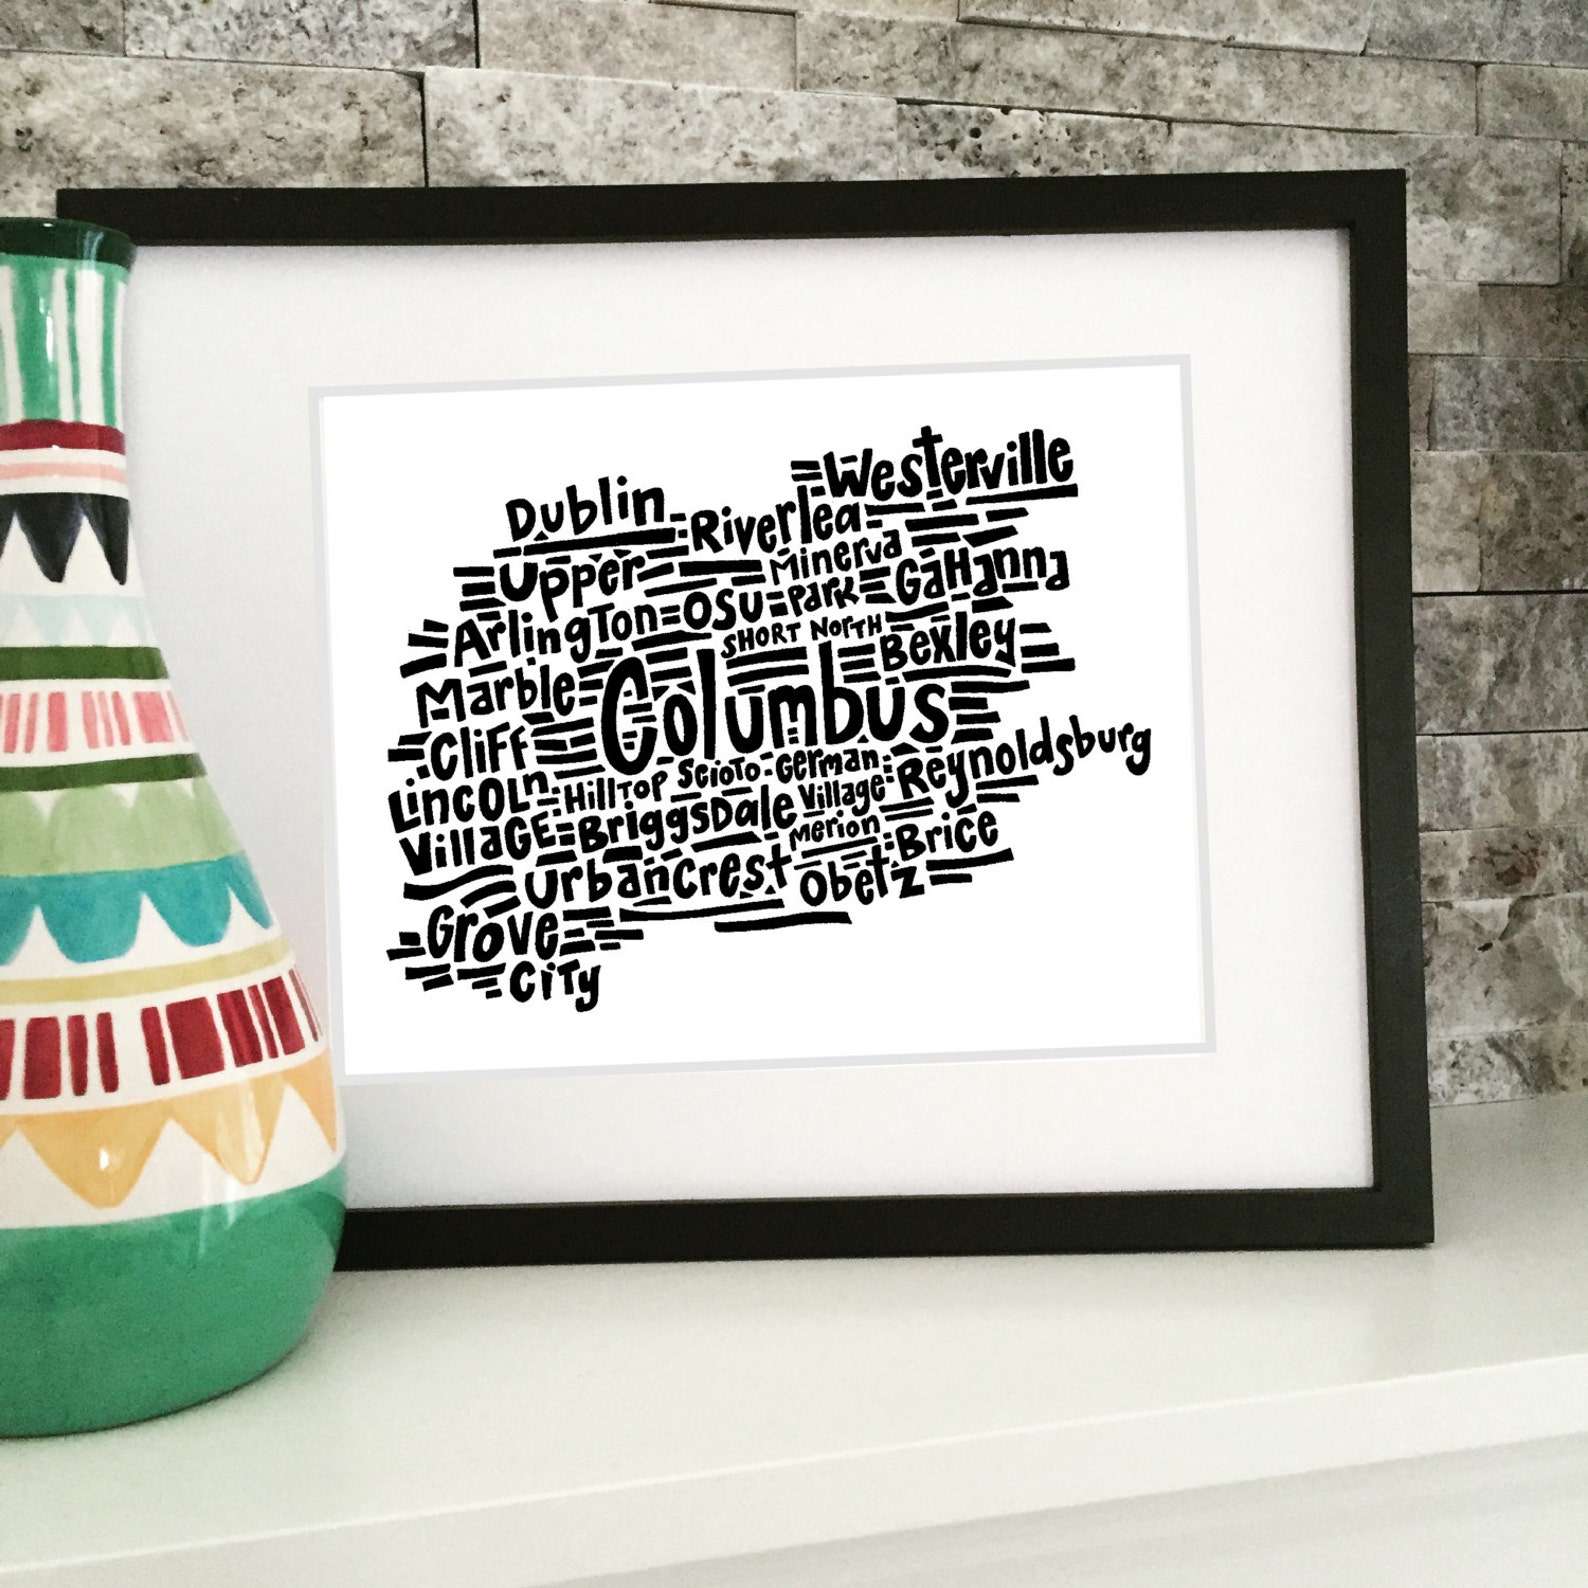 Westerville
Dublin
Riverlea
Upper
Minerva
Gahanna
Arlington
OSU
Park
Short North
Bexley
Marble
Columbus
Cliff
Reynoldsburg
Lincoln
Hilltop
Scioto
German
Village
Briggsdale
Village
Merion
Brice
Urbancrest
Obetz
Grove
City